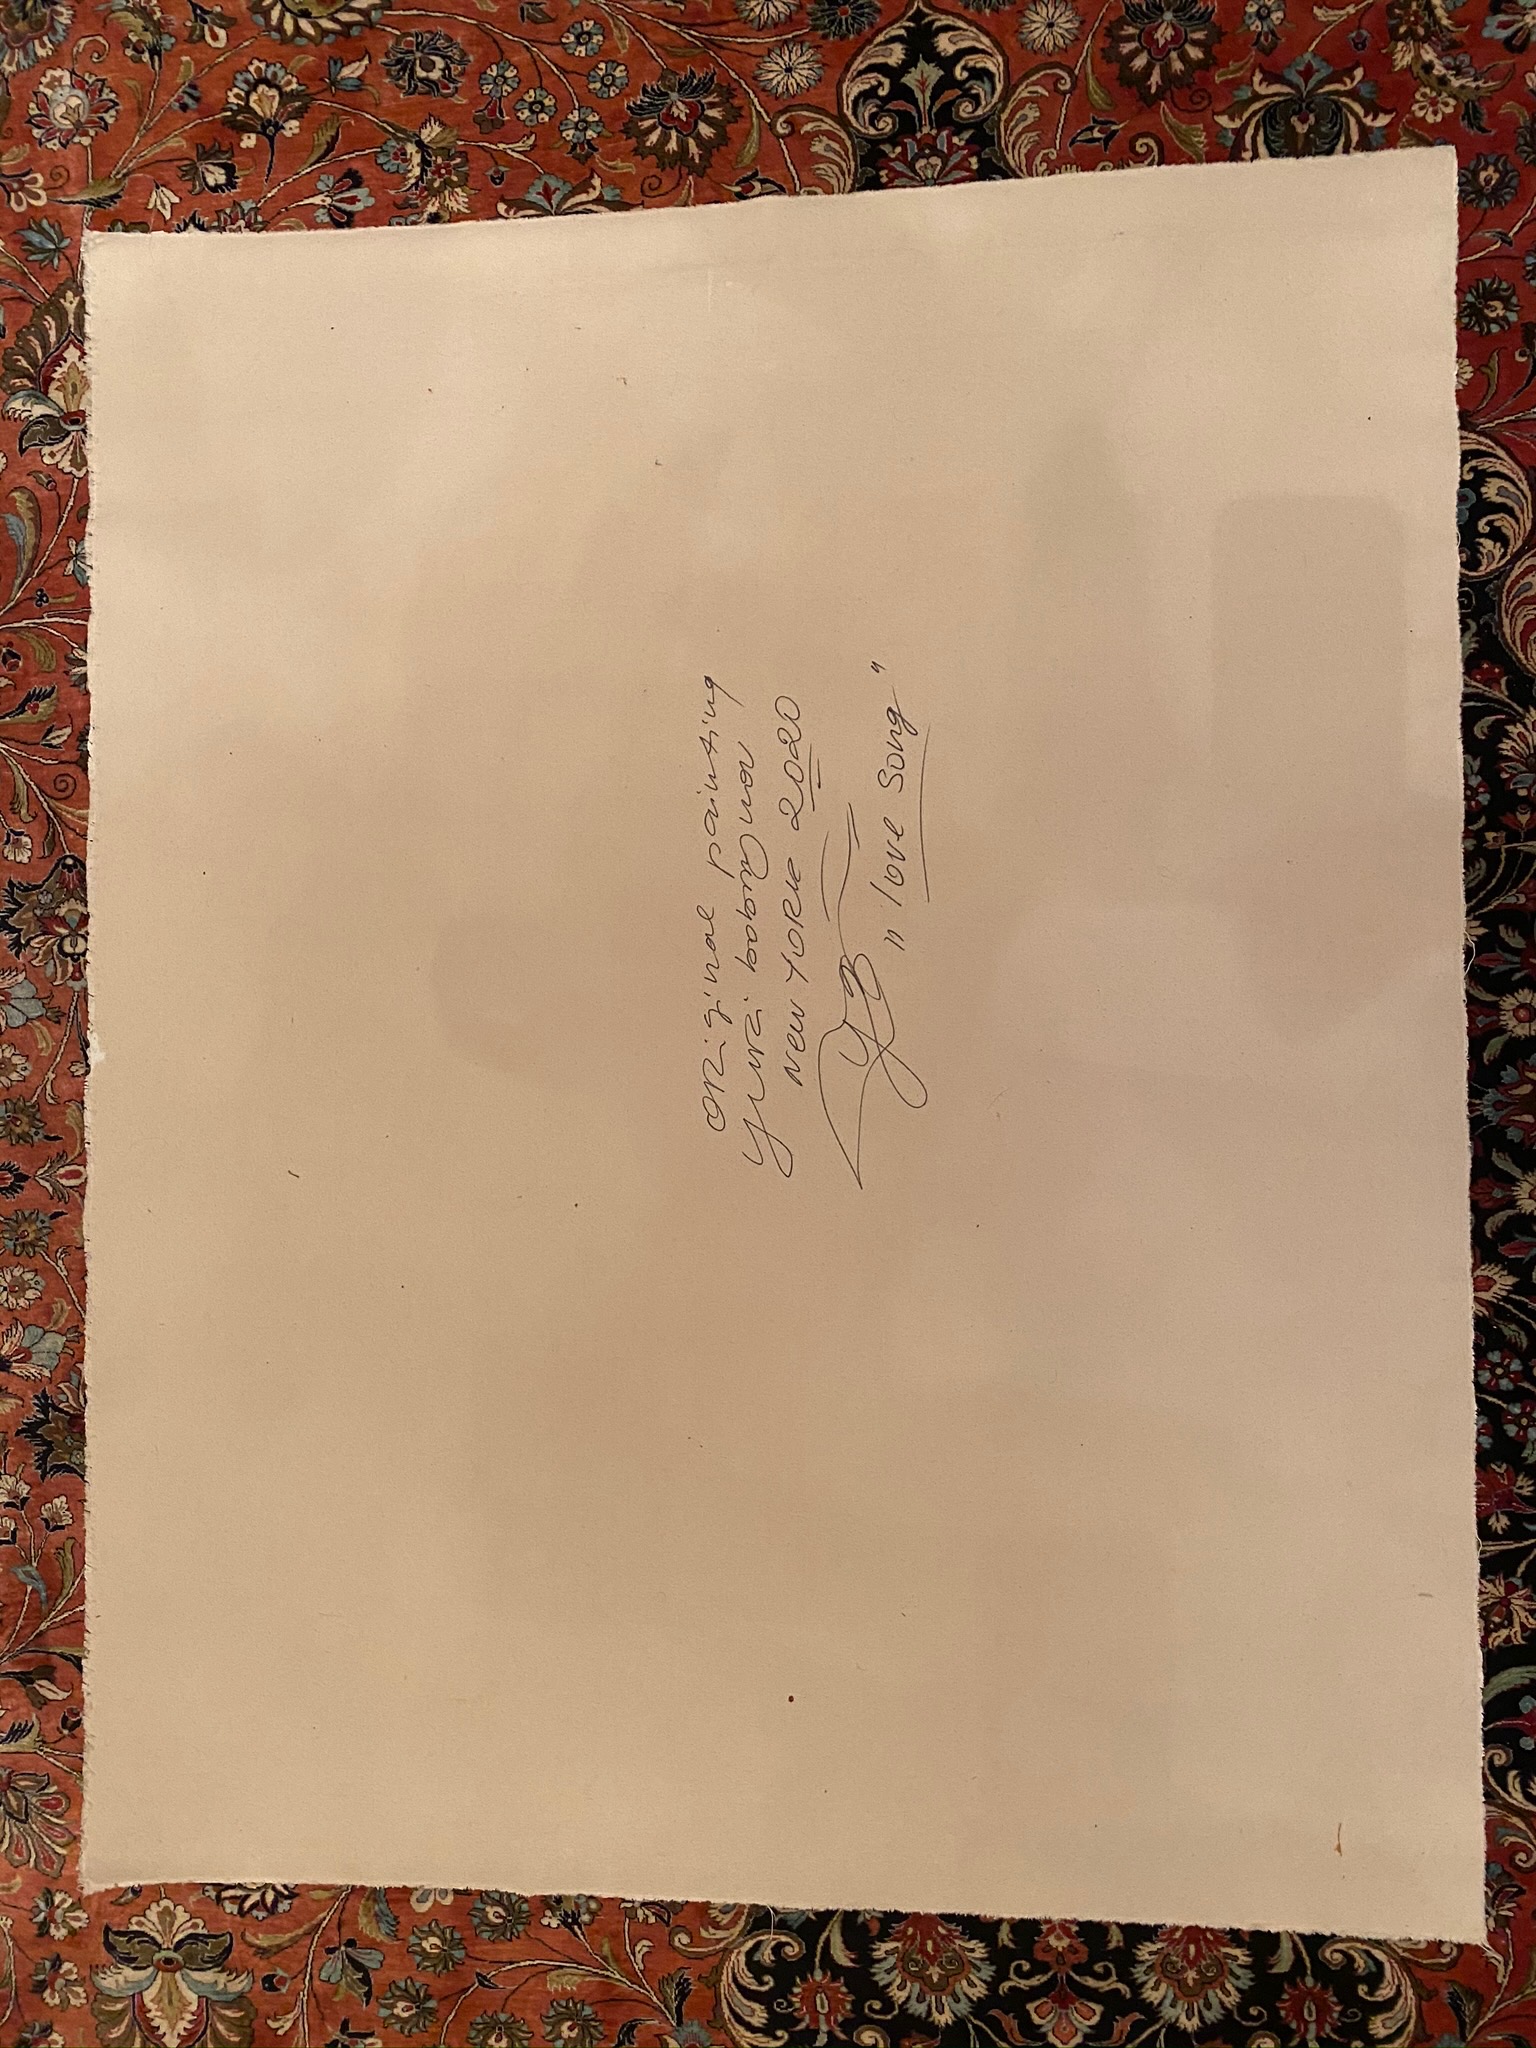 ORiginal painting
yuri
New YORK 2020
YB
"love song"